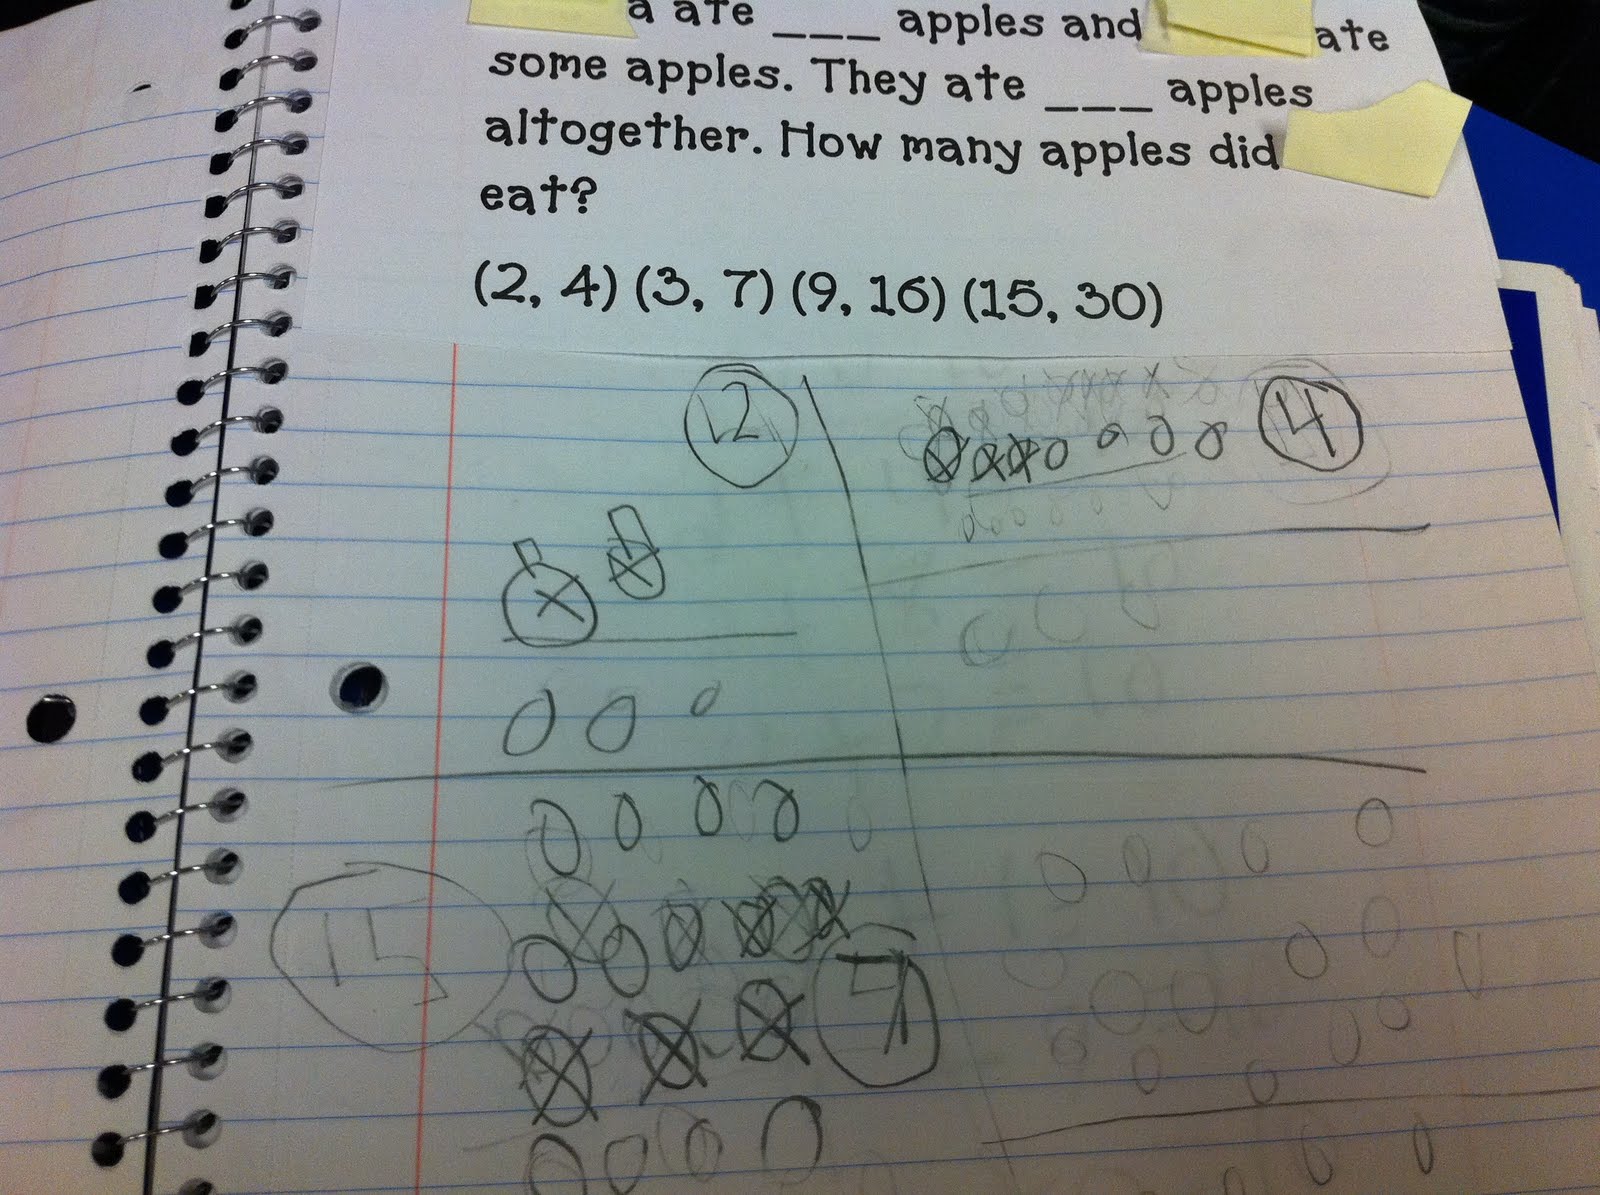 a ate ___ apples and ate
some apples. They ate ___ apples
altogether. How many apples did
eat?
(2, 4) (3, 7) (9, 16) (15, 30)
12
4
15
7